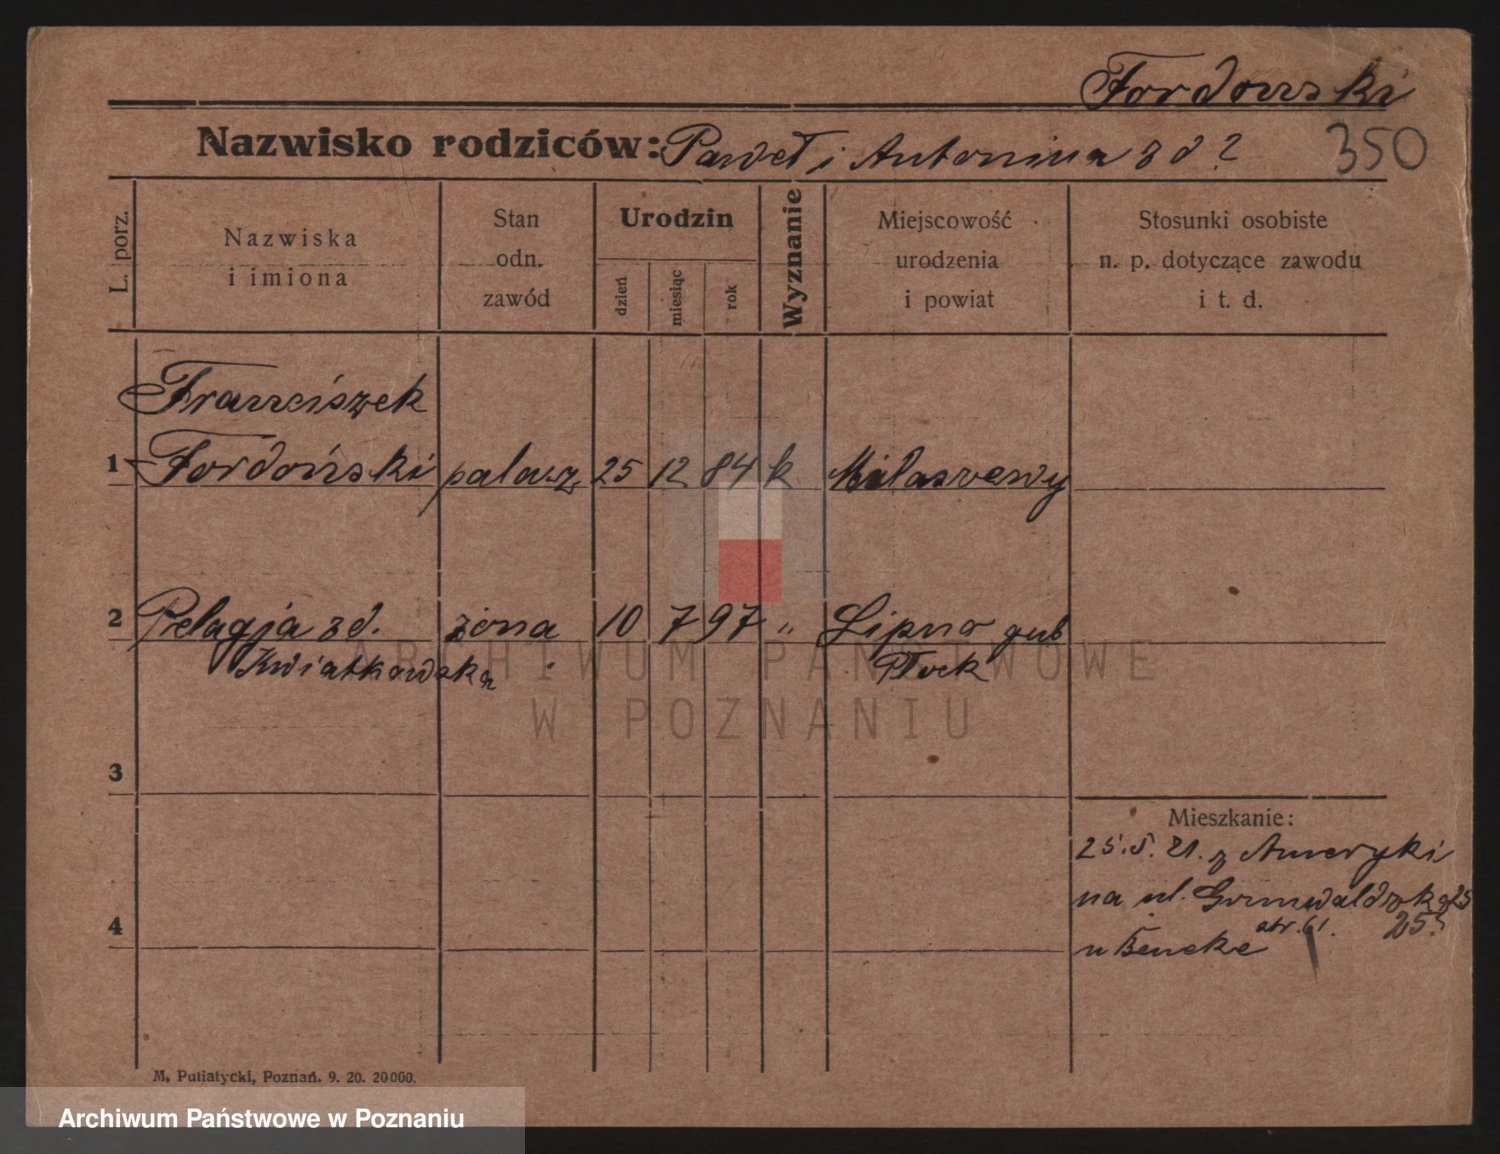 Fordoński
Nazwisko rodziców: Paweł i Antonina z d ?
350
L. porz.
Nazwiska
i imiona
Stan
odn.
zawód
Urodzin
dzień
miesiąc
rok
Wyznanie
Miejscowość
urodzenia
i powiat
Stosunki osobiste
n. p. dotyczące zawodu
i t. d.
Franciszek
1 Fordoński palasz 25 12 84 k
2 Pelagja z d. żona 10 7 97 „ Lipno gub
Kwiatkowska Płock
3
Mieszkanie:
25.5.21. z Ameryki
na ul. Grunwaldzką 25
25.
4
u Beneke str. 61.
M. Putiatycki, Poznań. 9. 20. 20000.
ARCHIWUM PAŃSTWOWE
W POZNANIU
Archiwum Państwowe w Poznaniu